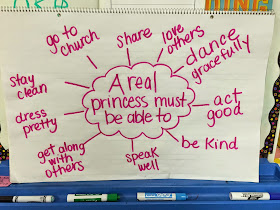 go to
church
share
love
others
dance
gracefully
stay
clean
A real
princess must
be able to
dress
pretty
act
good
get along
with
others
speak
well
be Kind